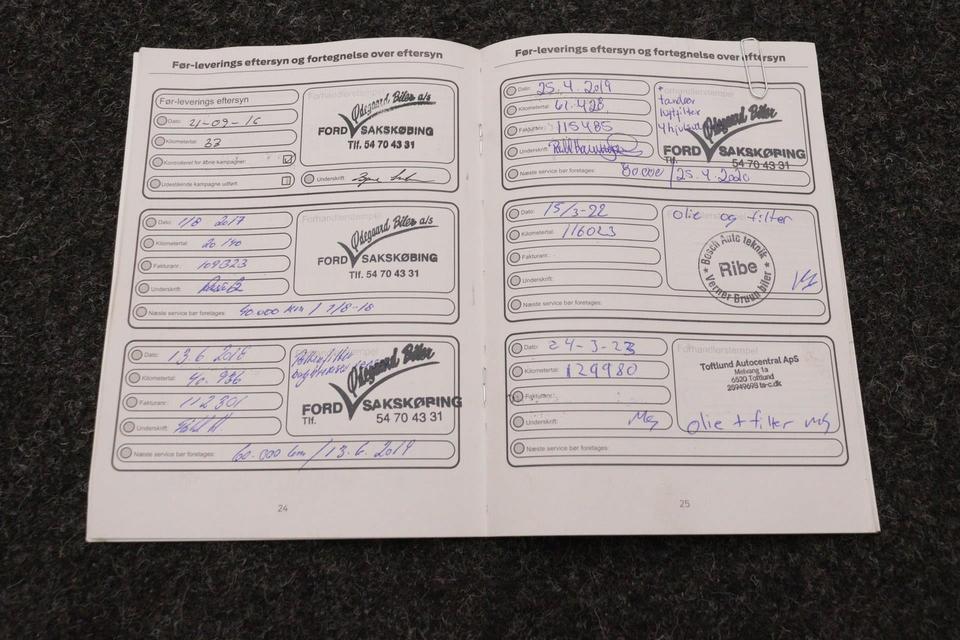 Før-leverings eftersyn og fortegnelse over eftersyn
Før-leverings eftersyn
Dato: 21-09-16
Kilometertal: 33
Kontrolleret for åbne kampagner:
Udestående kampagne udført:
Forhandlerstempel
Ødegaard Biler a/s
FORD SAKSKØBING
Tlf. 54 70 43 31
Underskrift:
Dato: 1/8 2017
Kilometertal: 20.190
Fakturanr.: 109323
Underskrift:
Næste service bør foretages: 40.000 km / 1/8-18
Forhandlerstempel
Ødegaard Biler a/s
FORD SAKSKØBING
Tlf. 54 70 43 31
Dato: 13.6 2018
Kilometertal: 40.936
Fakturanr.: 112301
Underskrift:
Næste service bør foretages: 60.000 km / 13.6.2019
Pollenfilter
Ødegaard Biler
FORD SAKSKØBING
Tlf. 54 70 43 31
24
Før-leverings eftersyn og fortegnelse over eftersyn
Dato: 25.4.2019
Kilometertal: 61.428
Fakturanr.: 115485
Underskrift:
Næste service bør foretages: 80.000 / 25.4.2020
Forhandlerstempel
tændrør
luftfilter
4 hjulsud
Ødegaard Biler
FORD SAKSKØBING
Tlf. 54 70 43 31
Dato: 15/3-22
Kilometertal: 116023
Fakturanr.:
Underskrift:
Næste service bør foretages:
Forhandlerstempel
olie og filter
Bosch Auto teknik
Ribe
Verner Bruun biler
Dato: 24-3-23
Kilometertal: 129980
Fakturanr.:
Underskrift:
Næste service bør foretages:
Forhandlerstempel
Toftlund Autocentral ApS
Melvang 1a
6520 Toftlund
25949693 ta-c.dk
olie + filter
25